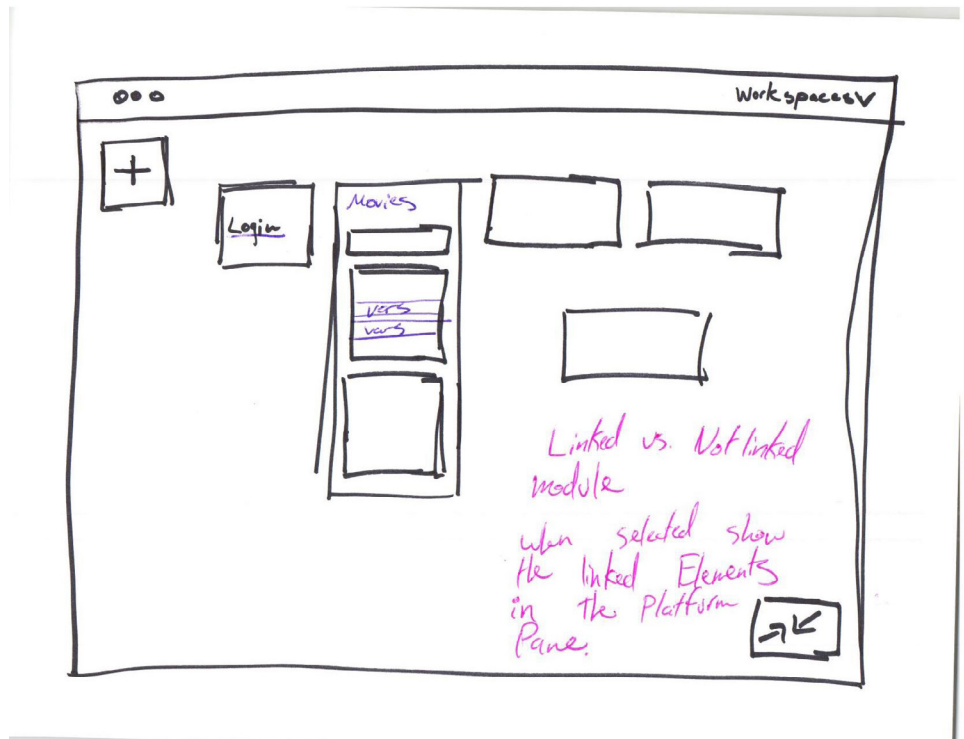 Workspaces
Login
Movies
vars
vars
Linked vs. Not linked
module
when selected show
the linked Elements
in the Platform
Pane.